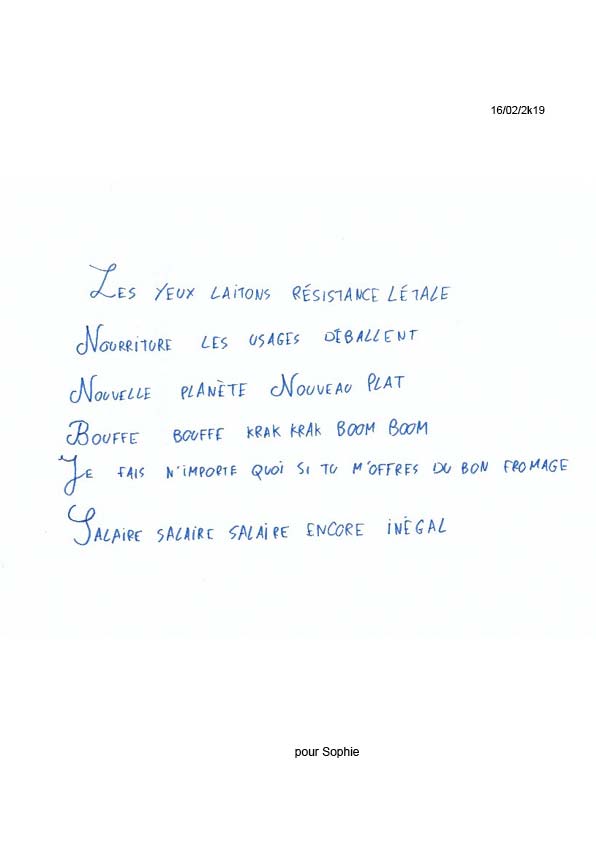 16/02/2k19
Les yeux laitons résistance létale
Nourriture les usages déballent
Nouvelle planète Nouveau plat
Bouffe bouffe krak krak boom boom
Je fais n'importe quoi si tu m'offres du bon fromage
Salaire salaire salaire encore inégal
pour Sophie